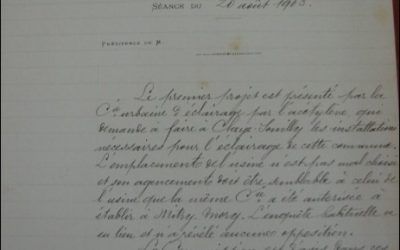 SÉANCE DU 20 août 1903.
PRÉSIDENCE DE M
Le premier projet est présenté par la
Cie urbaine d'éclairage par l'acétylène qui
demande à faire à Claye-Souilly les installations
nécessaires pour l'éclairage de cette commune.
L'emplacement de l'usine n'est pas mal choisi
et son agencement doit être semblable à celui de
l'usine que la même Cie a été autorisée à
établir à Mitry-Mory. L'enquête habituelle a
eu lieu et n'a révélé aucune opposition.